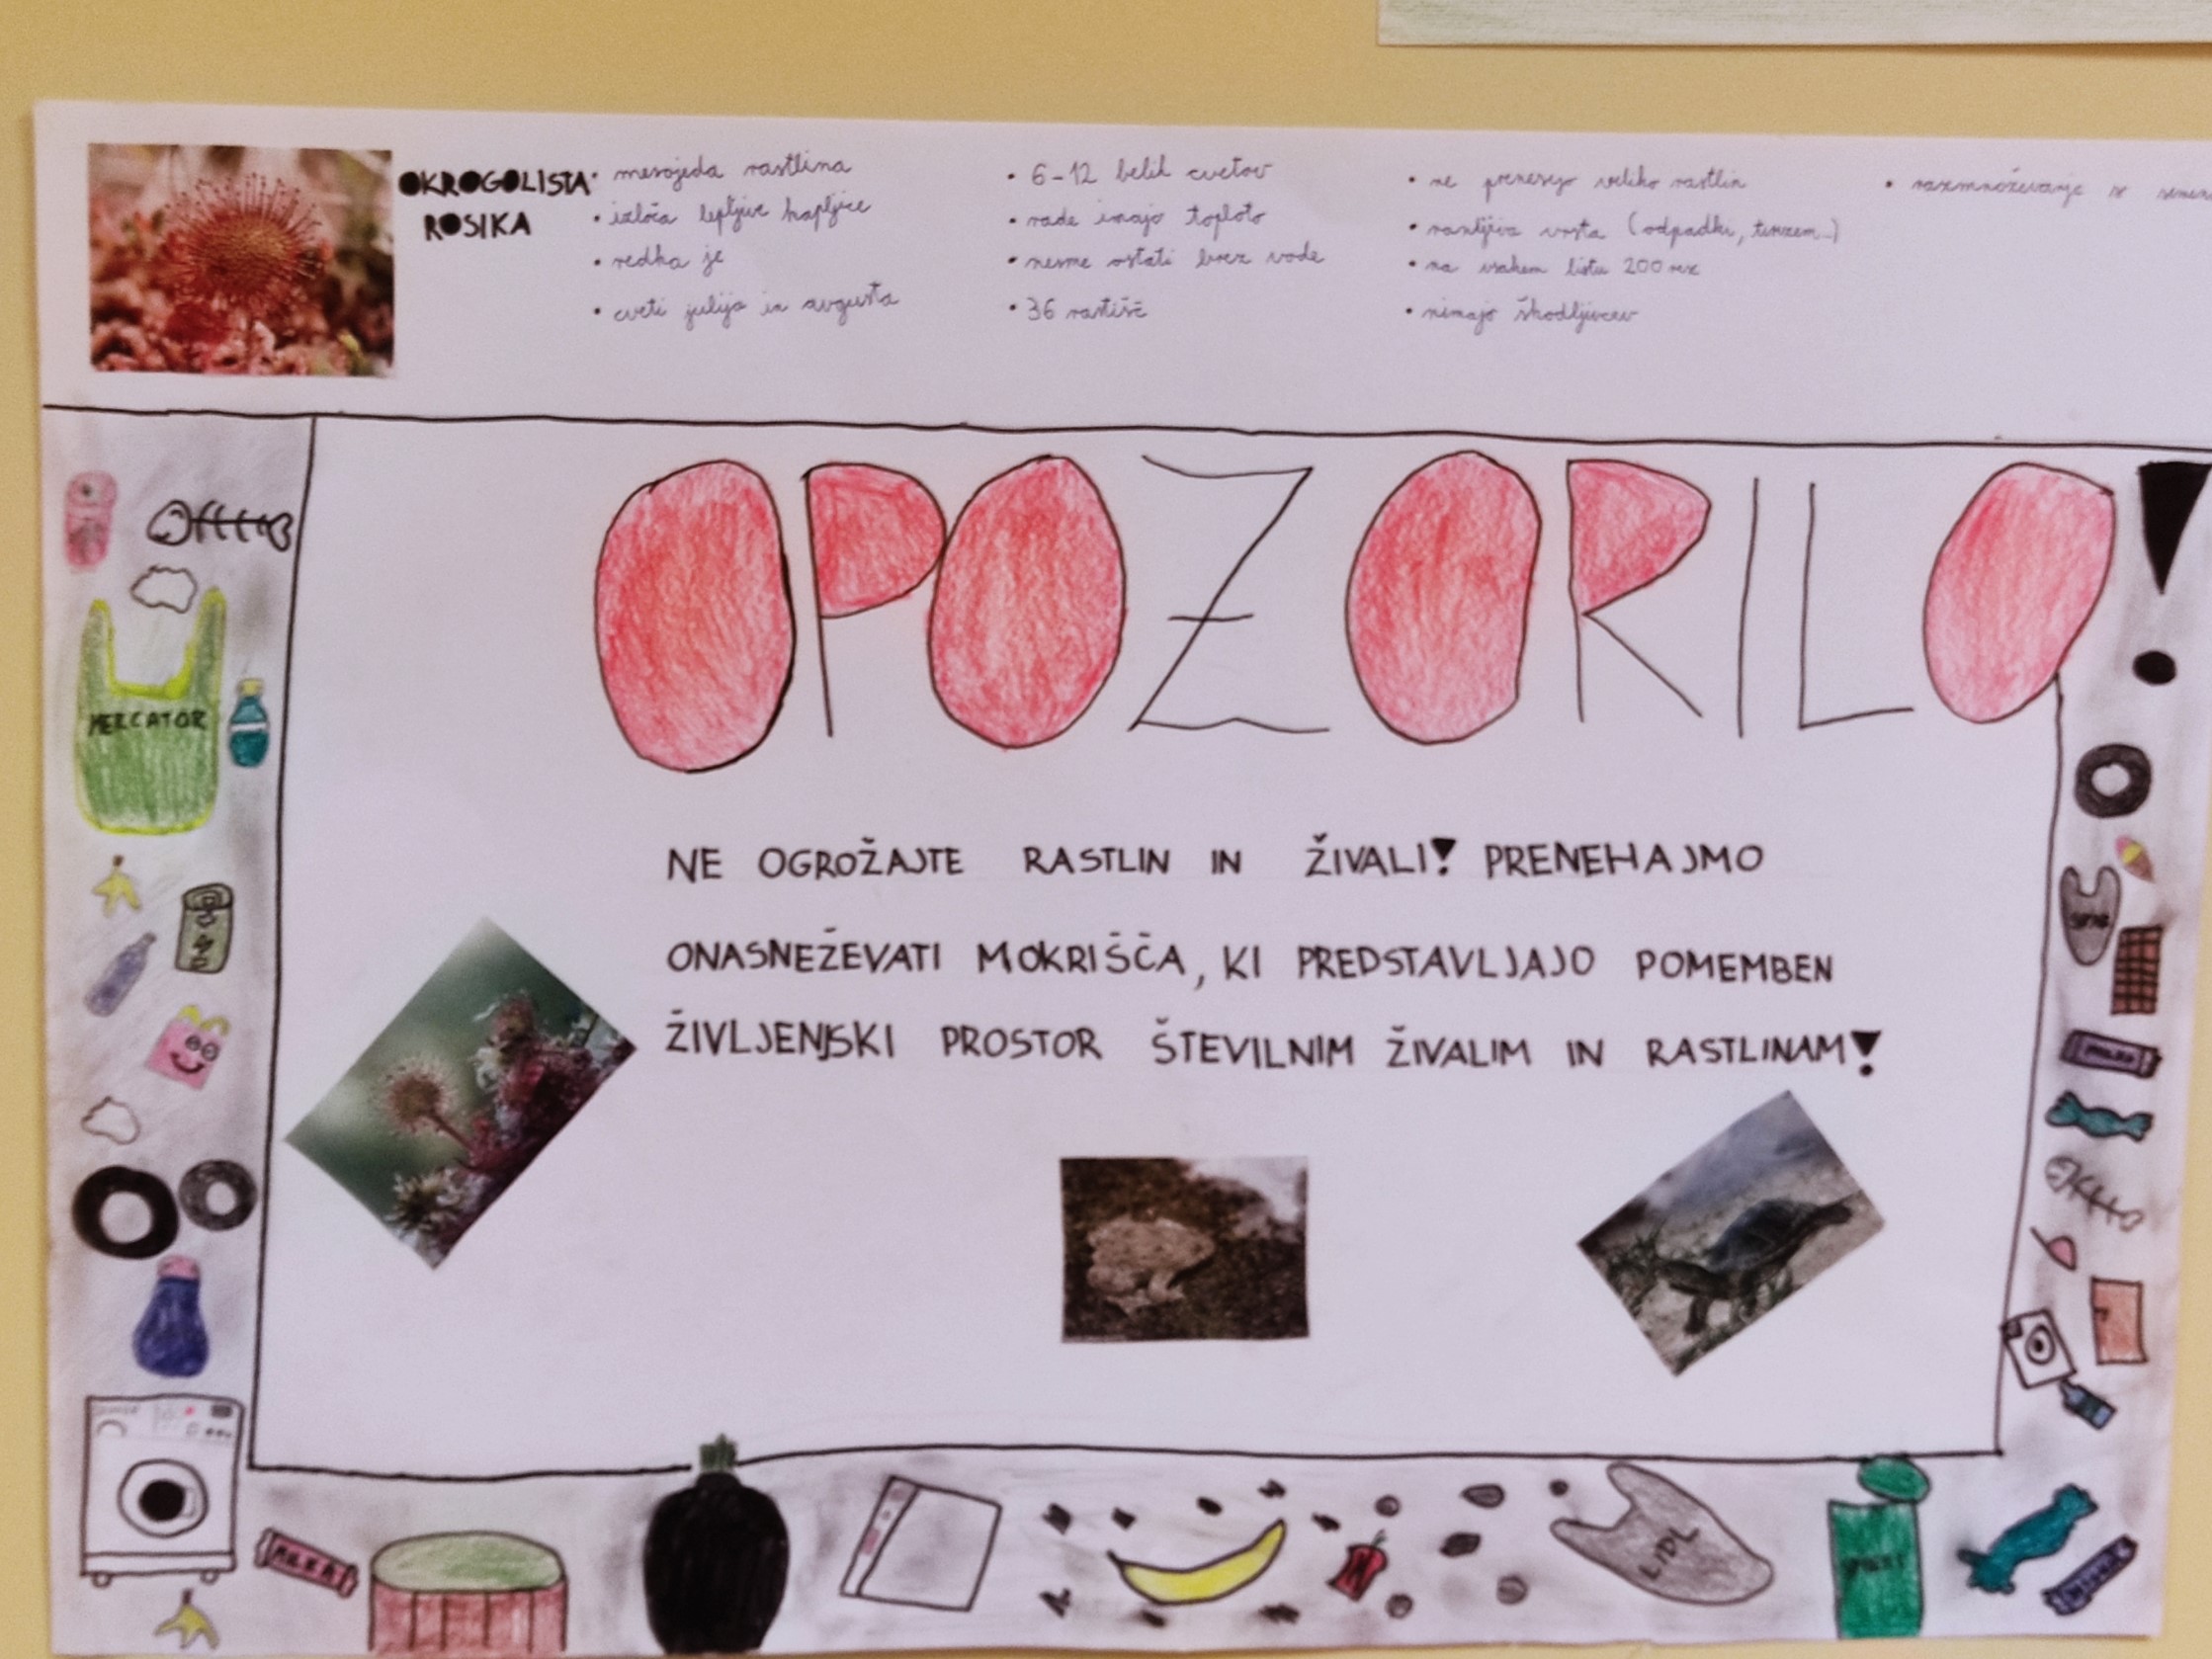 OKROGOLISTA
ROSIKA
• mesojeda rastlina
• izloča lepljive kapljice
• redka je
• cveti julija in avgusta
• 6-12 belih cvetov
• rade imajo toploto
• nesme ostati brez vode
• 36 rastišč
• ne prenesejo veliko rastlin
• ranljiva vrsta (odpadki, turizem...)
• na vsakem listu 200
• nimajo škodljivcev
• razmnoževanje s
OPOZORILO!
NE OGROŽAJTE RASTLIN IN ŽIVALI! PRENEHAJMO
ONASNEŽEVATI MOKRIŠČA, KI PREDSTAVLJAJO POMEMBEN
ŽIVLJENJSKI PROSTOR ŠTEVILNIM ŽIVALIM IN RASTLINAM!
MERCATOR
MILKA
LIDL